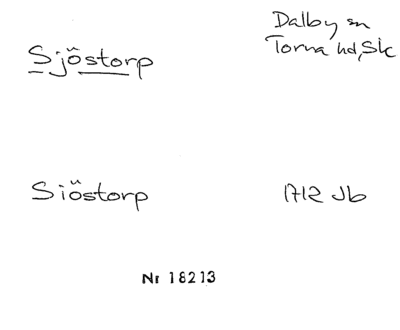 Dalby sn
Sjöstorp Torna hd, Sk
Siöstorp 1712 Jb
Nr 18213